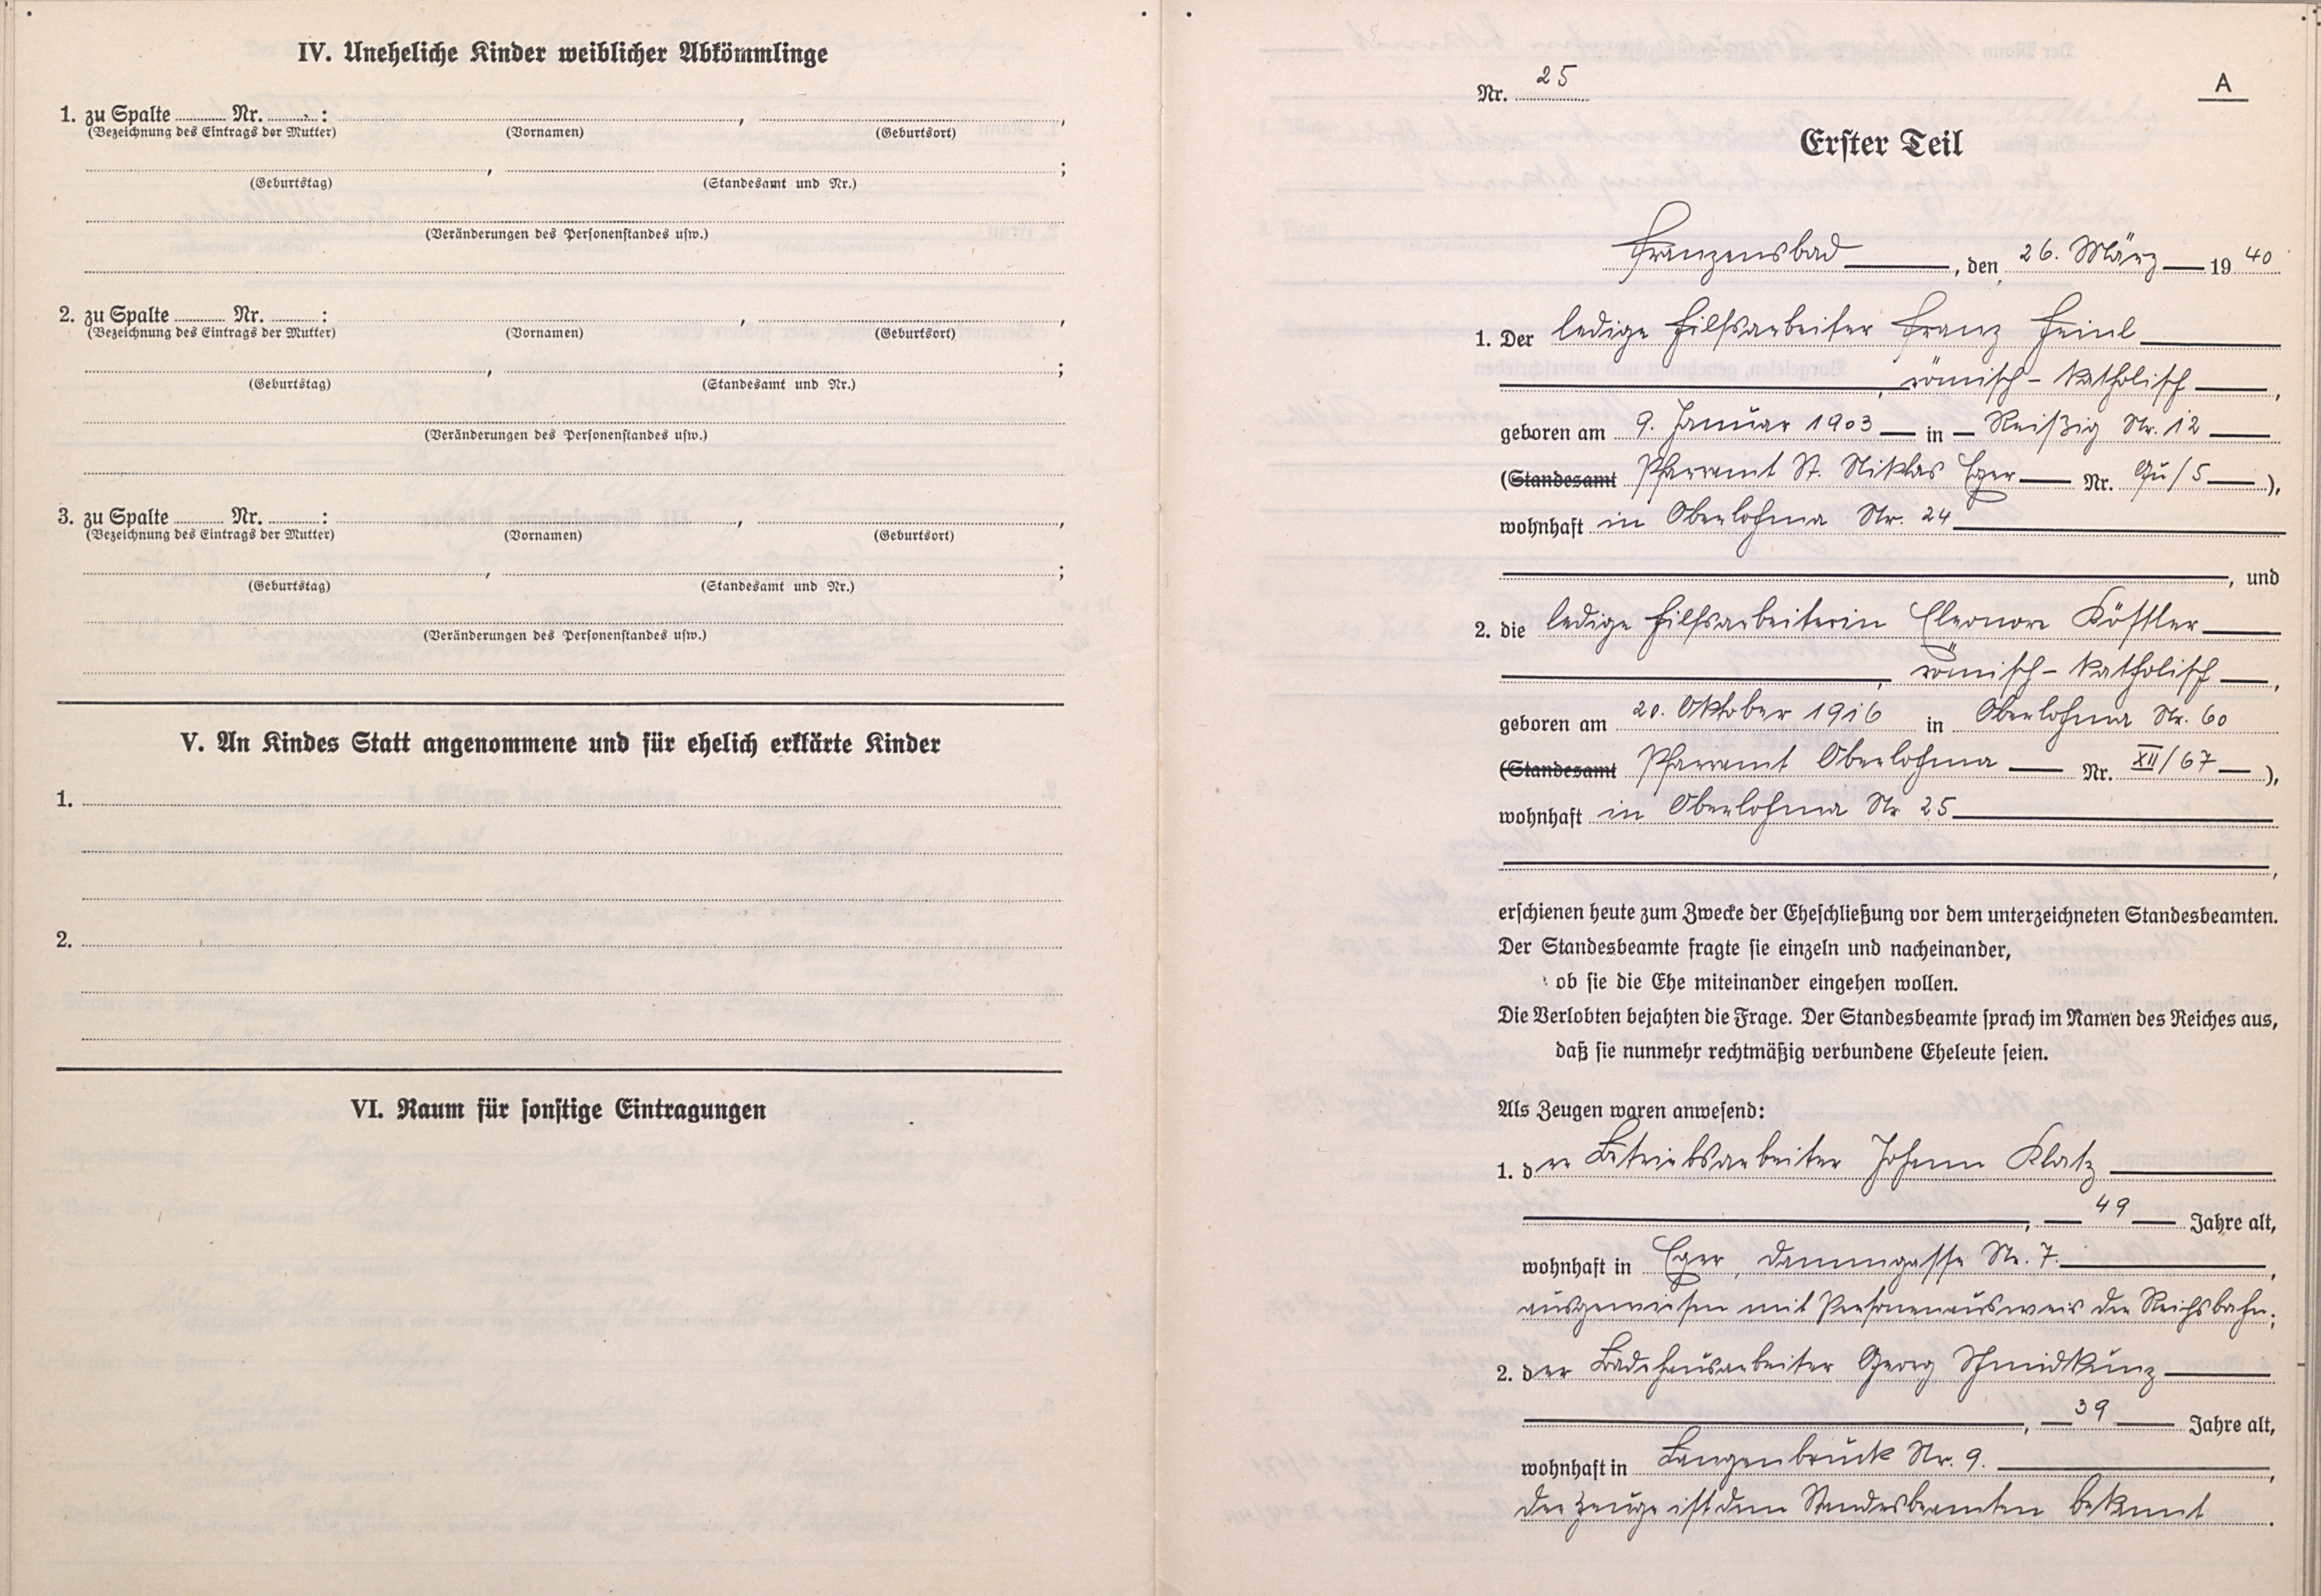 IV. Uneheliche Kinder weiblicher Abkömmlinge
1. zu Spalte ........ Nr. ........ : ........ , ........ ,
(Bezeichnung des Eintrags der Mutter) (Vornamen) (Geburtsort)
........ , ........ ;
(Geburtstag) (Standesamt und Nr.)
(Veränderungen des Personenstandes usw.)
2. zu Spalte ........ Nr. ........ : ........ , ........ ,
(Bezeichnung des Eintrags der Mutter) (Vornamen) (Geburtsort)
........ , ........ ;
(Geburtstag) (Standesamt und Nr.)
(Veränderungen des Personenstandes usw.)
3. zu Spalte ........ Nr. ........ : ........ , ........ ,
(Bezeichnung des Eintrags der Mutter) (Vornamen) (Geburtsort)
........ , ........ ;
(Geburtstag) (Standesamt und Nr.)
(Veränderungen des Personenstandes usw.)
V. An Kindes Statt angenommene und für ehelich erklärte Kinder
1.
2.
VI. Raum für sonstige Eintragungen
A
Nr. 25
Erster Teil
Franzensbad, den 26. März 1940
1. Der ledige Hilfsarbeiter Franz Heinl
, römisch-katholisch,
geboren am 9. Januar 1903 in Reißig Nr. 12
(Standesamt Pfarramt St. Niklas Eger Nr. /5),
wohnhaft in Oberlohma Nr. 24
, und
2. die ledige Hilfsarbeiterin Eleonore Köstler
, römisch-katholisch,
geboren am 20. Oktober 1916 in Oberlohma Nr. 60
(Standesamt Pfarramt Oberlohma Nr. XII/67),
wohnhaft in Oberlohma Nr 25
,
erschienen heute zum Zwecke der Eheschließung vor dem unterzeichneten Standesbeamten.
Der Standesbeamte fragte sie einzeln und nacheinander,
ob sie die Ehe miteinander eingehen wollen.
Die Verlobten bejahten die Frage. Der Standesbeamte sprach im Namen des Reiches aus,
daß sie nunmehr rechtmäßig verbundene Eheleute seien.
Als Zeugen waren anwesend:
1. der Betriebsarbeiter Johann Klatz
, 49 Jahre alt,
wohnhaft in Eger, Dammgasse Nr. 7.,
ausgewiesen mit Personenausweis der Reichsbahn;
2. der Badehausarbeiter Georg Schmidkunz
, 39 Jahre alt,
wohnhaft in Langenbruck Nr. 9.,
der Zeuge ist dem Standesbeamten bekannt.